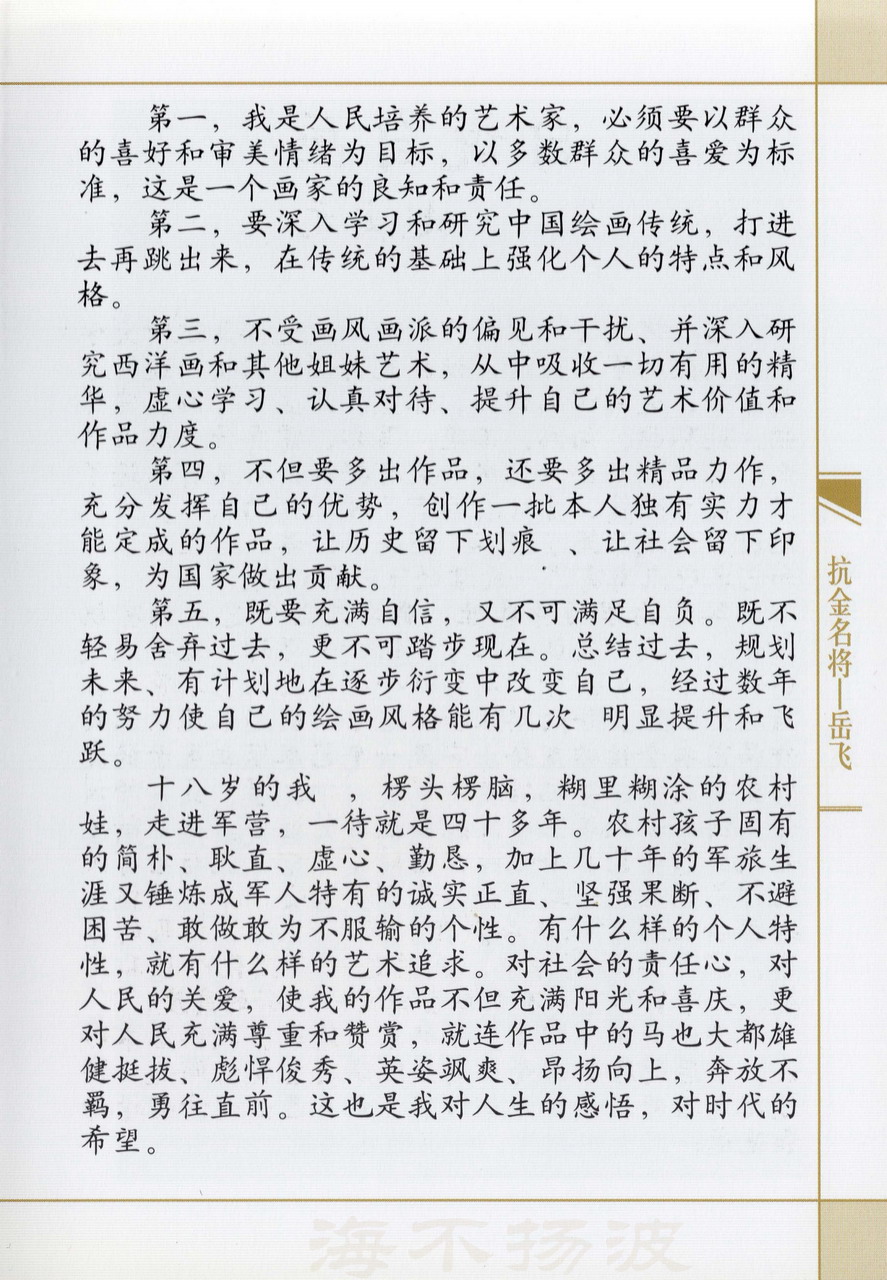 第一，我是人民培养的艺术家，必须要以群众
的喜好和审美情绪为目标，以多数群众的喜爱为标
准，这是一个画家的良知和责任。
第二，要深入学习和研究中国绘画传统，打进
去再跳出来，在传统的基础上强化个人的特点和风
格。
第三，不受画风画派的偏见和干扰、并深入研
究西洋画和其他姐妹艺术，从中吸收一切有用的精
华，虚心学习、认真对待、提升自己的艺术价值和
作品力度。
第四，不但要多出作品，还要多出精品力作，
充分发挥自己的优势，创作一批本人独有实力才
能定成的作品，让历史留下划痕 、让社会留下印
象，为国家做出贡献。
第五，既要充满自信，又不可满足自负。既不
轻易舍弃过去，更不可踏步现在。总结过去，规划
未来、有计划地在逐步衍变中改变自己，经过数年
的努力使自己的绘画风格能有几次 明显提升和飞
跃。
十八岁的我 ，楞头楞脑，糊里糊涂的农村
娃，走进军营，一待就是四十多年。农村孩子固有
的简朴、耿直、虚心、勤恳，加上几十年的军旅生
涯又锤炼成军人特有的诚实正直、坚强果断、不避
困苦、敢做敢为不服输的个性。有什么样的个人特
性，就有什么样的艺术追求。对社会的责任心，对
人民的关爱，使我的作品不但充满阳光和喜庆，更
对人民充满尊重和赞赏，就连作品中的马也大都雄
健挺拔、彪悍俊秀、英姿飒爽、昂扬向上，奔放不
羁，勇往直前。这也是我对人生的感悟，对时代的
希望。
抗金名将—岳飞
海不扬波